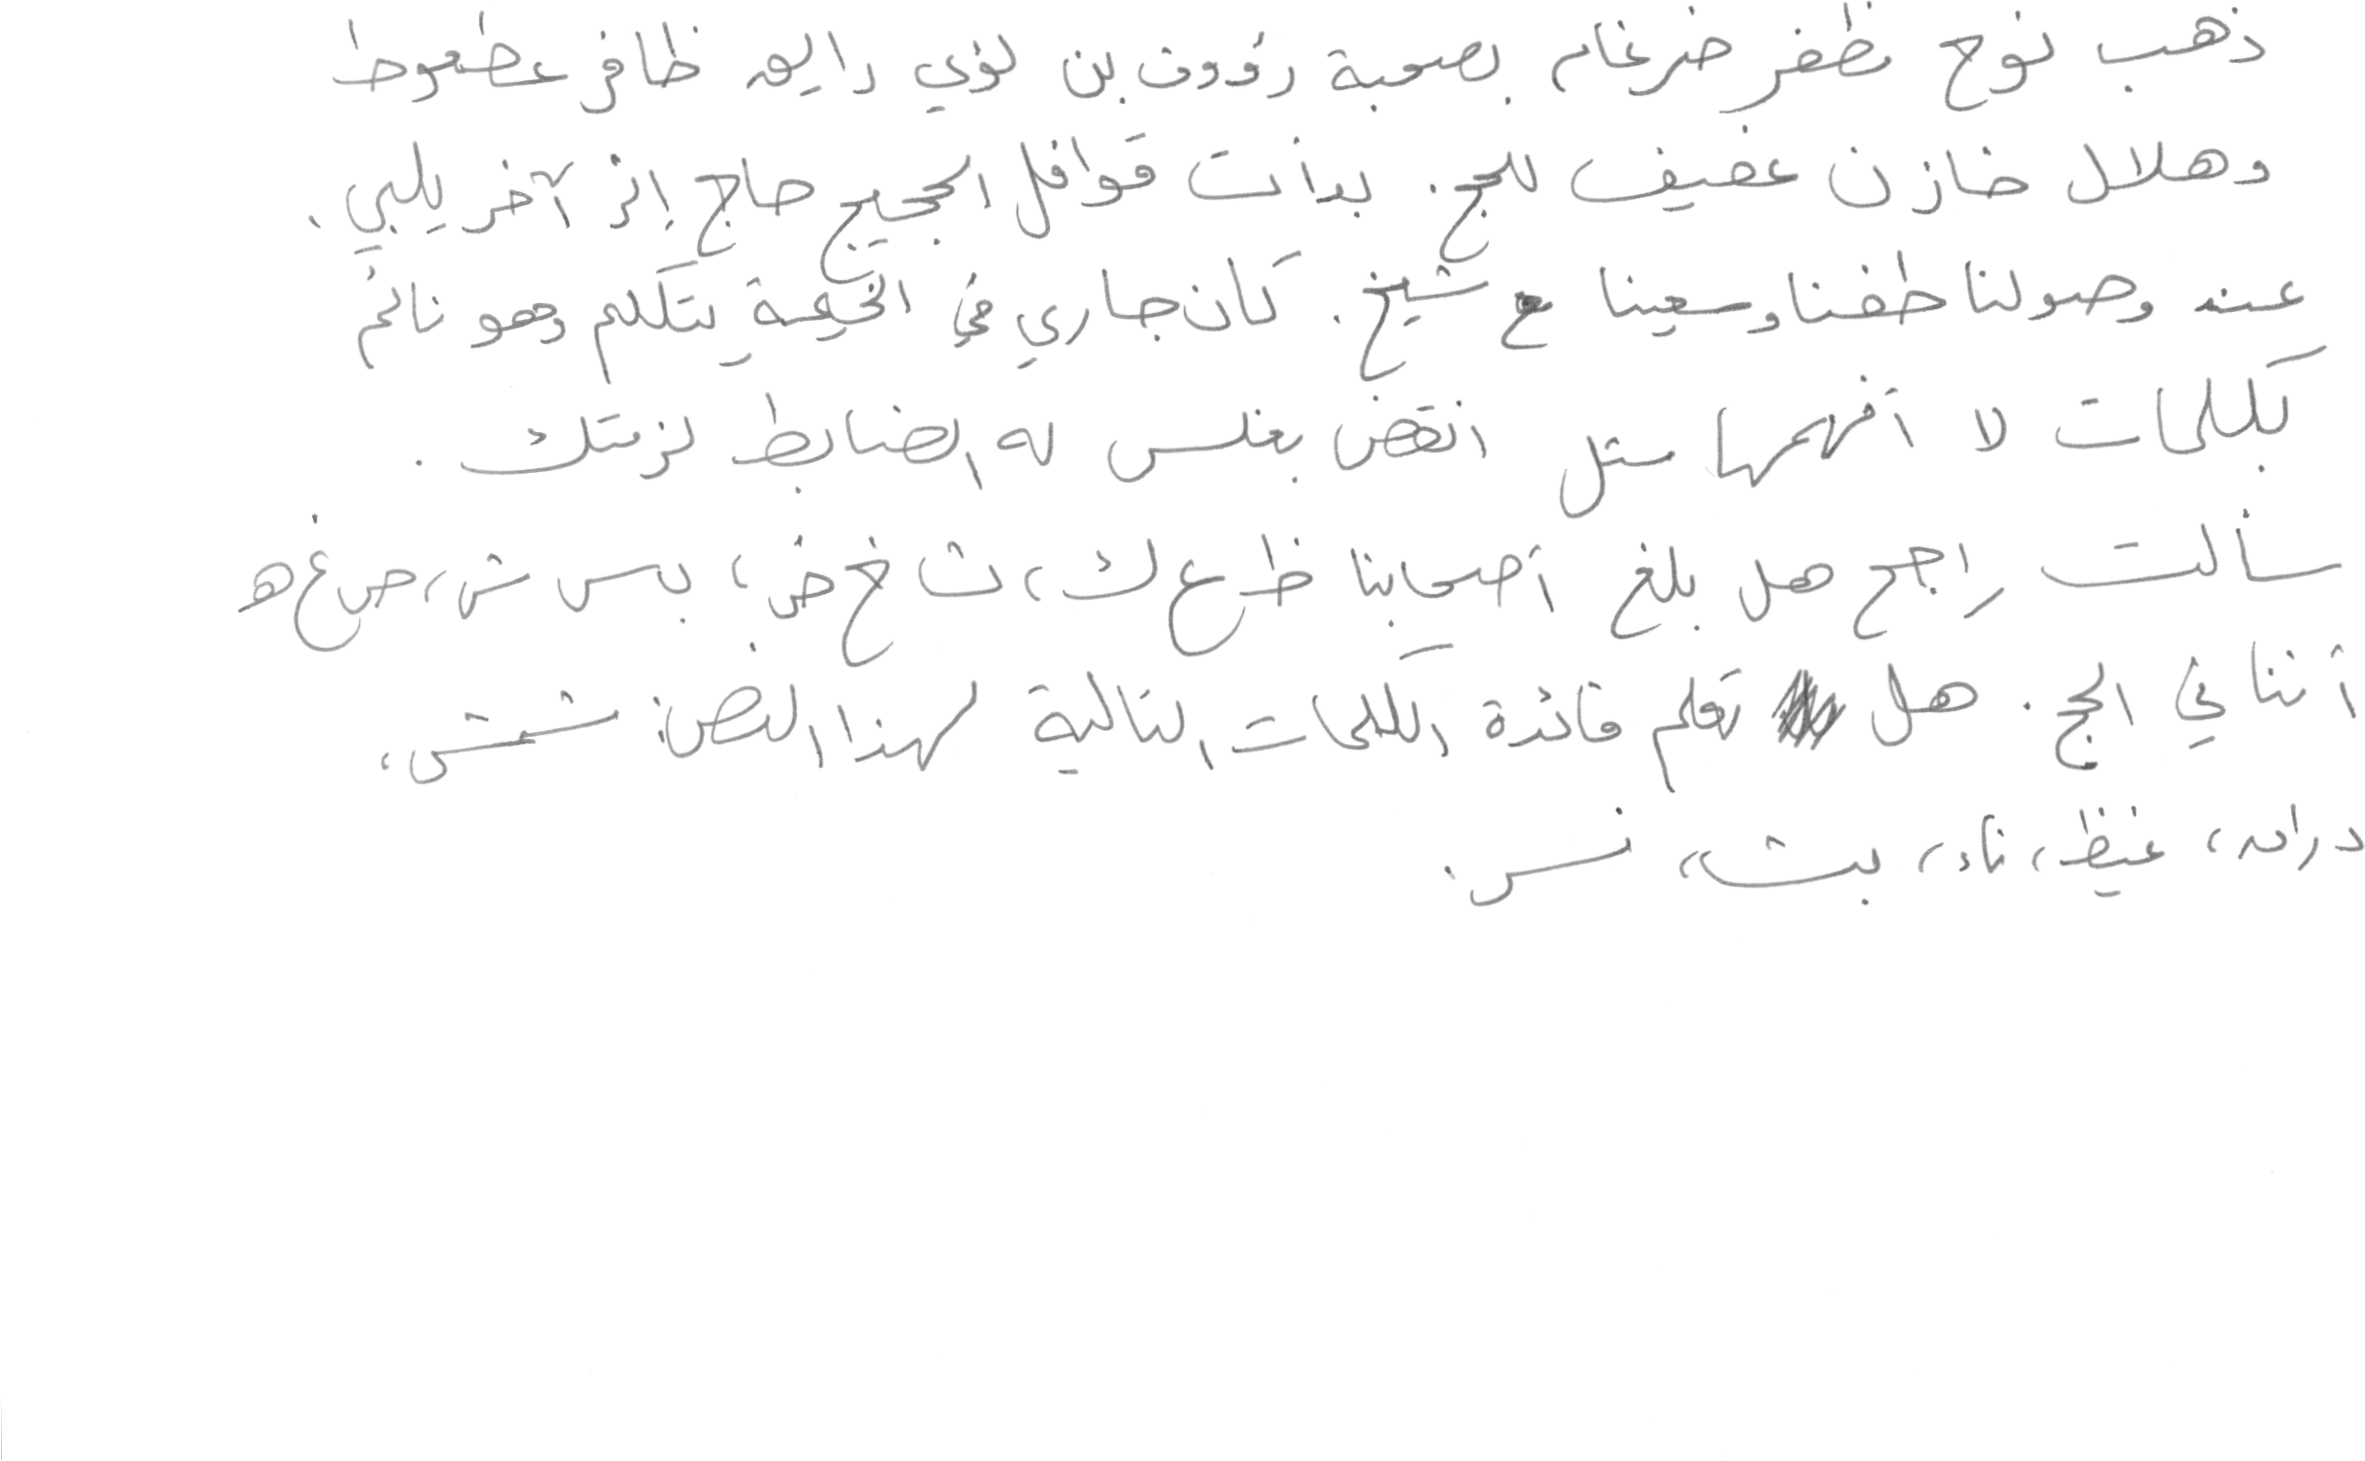 ذهب نوح مظفر ضرغام بصحبة رؤوف بن لؤي رايق ظافر عطعوط
وهلال خازن عفيف للحج. بدأت قوافل الحجيج حاج إثر آخر يلبي.
عند وصولنا طفنا وسعينا مع شيخ. كان جاري في الخيمة يتكلم وهو نائم
بكلمات لا أفهمها مثل انقض بغلس له الضابط لزمتك.
سألت راجح هل بلغ أصحابنا ظ ع ك، ث خ ض، ب س ش، ص غ ه
أثنائي الحج. هل تعلم فائدة الكلمات التالية لهذا النص: شمس،
دراق، غيظ، ناء، بث، نس.